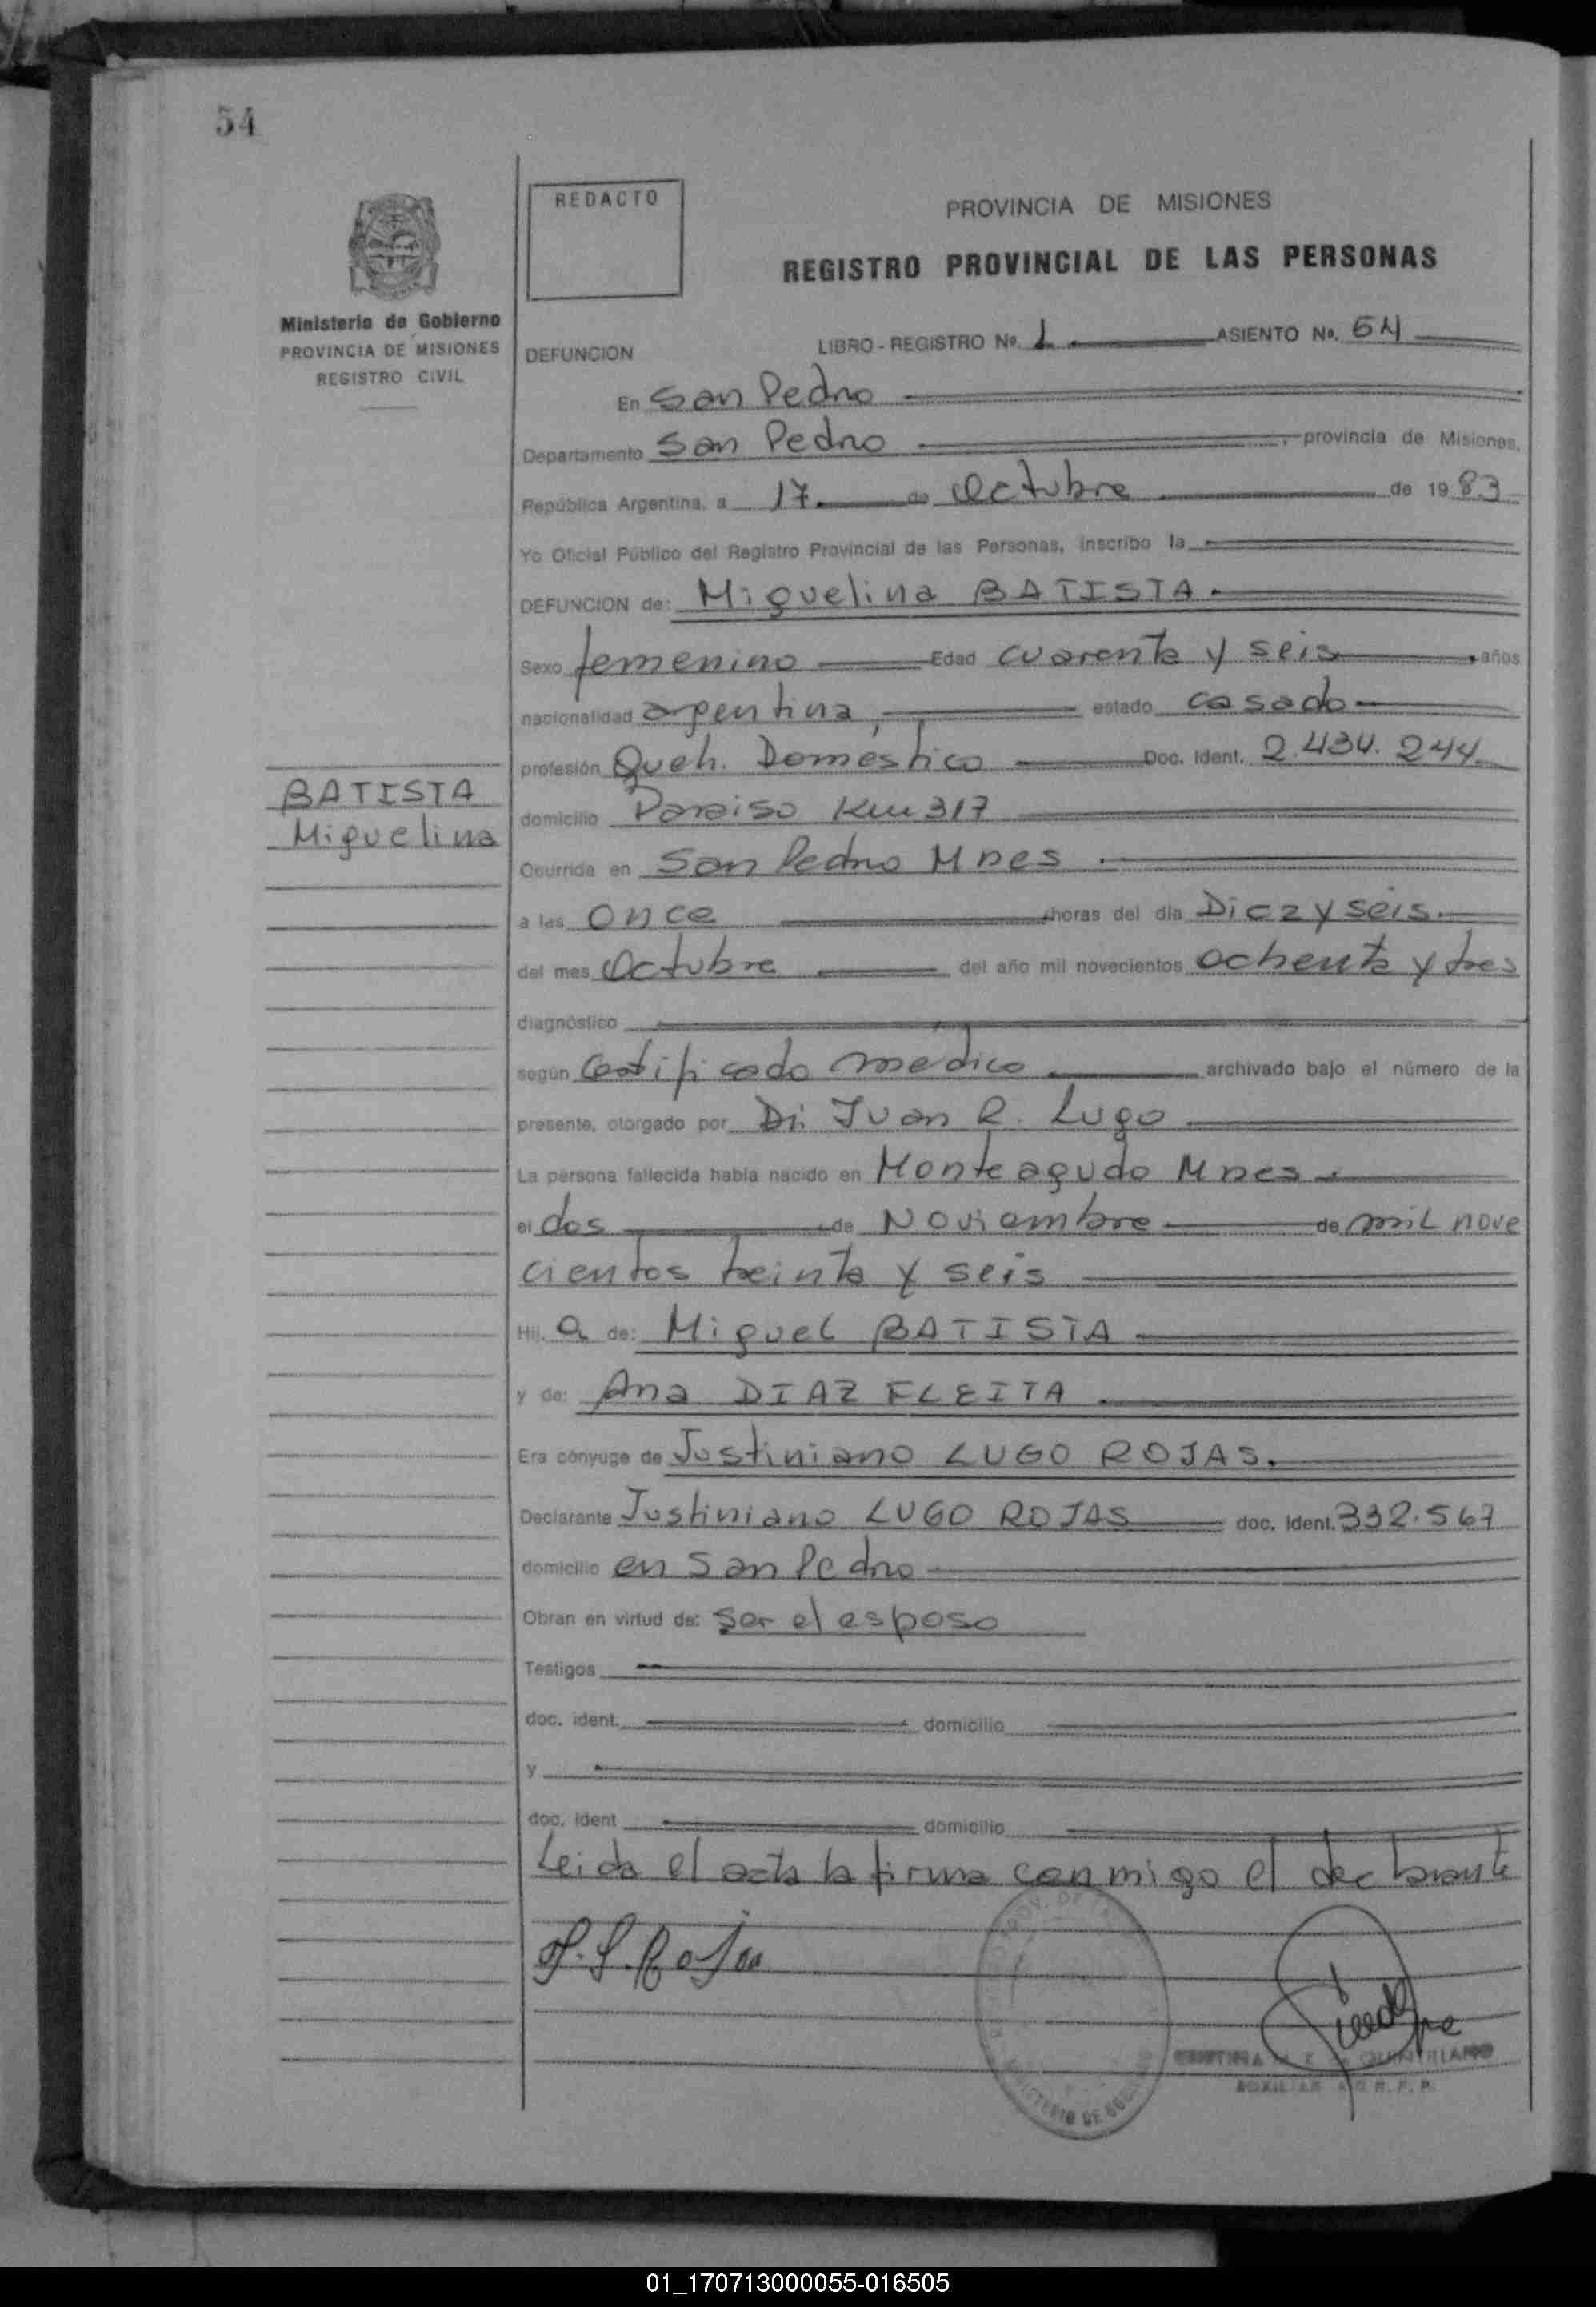 54
REDACTO
PROVINCIA DE MISIONES
REGISTRO PROVINCIAL DE LAS PERSONAS
Ministerio de Gobierno
PROVINCIA DE MISIONES
REGISTRO CIVIL
DEFUNCION LIBRO - REGISTRO No. 1 ASIENTO No. 54
En San Pedro
Departamento San Pedro , provincia de Misiones,
República Argentina, a 17 de Octubre de 19 83
Yo Oficial Público del Registro Provincial de las Personas, inscribo la
DEFUNCION de: Miguelina BATISTA
Sexo femenino Edad cuarenta y seis años
nacionalidad argentina, estado casado
profesión Queh. Doméstico Doc. Ident. 2.434.244
BATISTA
Miguelina
domicilio Paraiso Km 317
Ocurrida en San Pedro Mnes
a las once horas del día Diez y seis
del mes Octubre del año mil novecientos ochenta y tres
diagnóstico
según Certificado medico archivado bajo el número de la
presente, otorgado por Dr. Juan R. Lugo
La persona fallecida había nacido en Monteagudo Mnes
el dos de Noviembre de mil nove
cientos treinta y seis
Hij. a de: Miguel BATISTA
y de: Ana DIAZ FLEITA
Era cónyuge de Justiniano LUGO ROJAS.
Declarante Justiniano LUGO ROJAS doc. Ident. 332.567
domicilio en San Pedro
Obran en virtud de: ser el esposo
Testigos
doc. ident. domicilio
y
doc. ident domicilio
Leida el acta la firma conmigo el declarante
J. L. Rojas
QUINTILLANO
AUXILIAR R. P. P.
MINISTERIO DE GOB
01_170713000055-016505